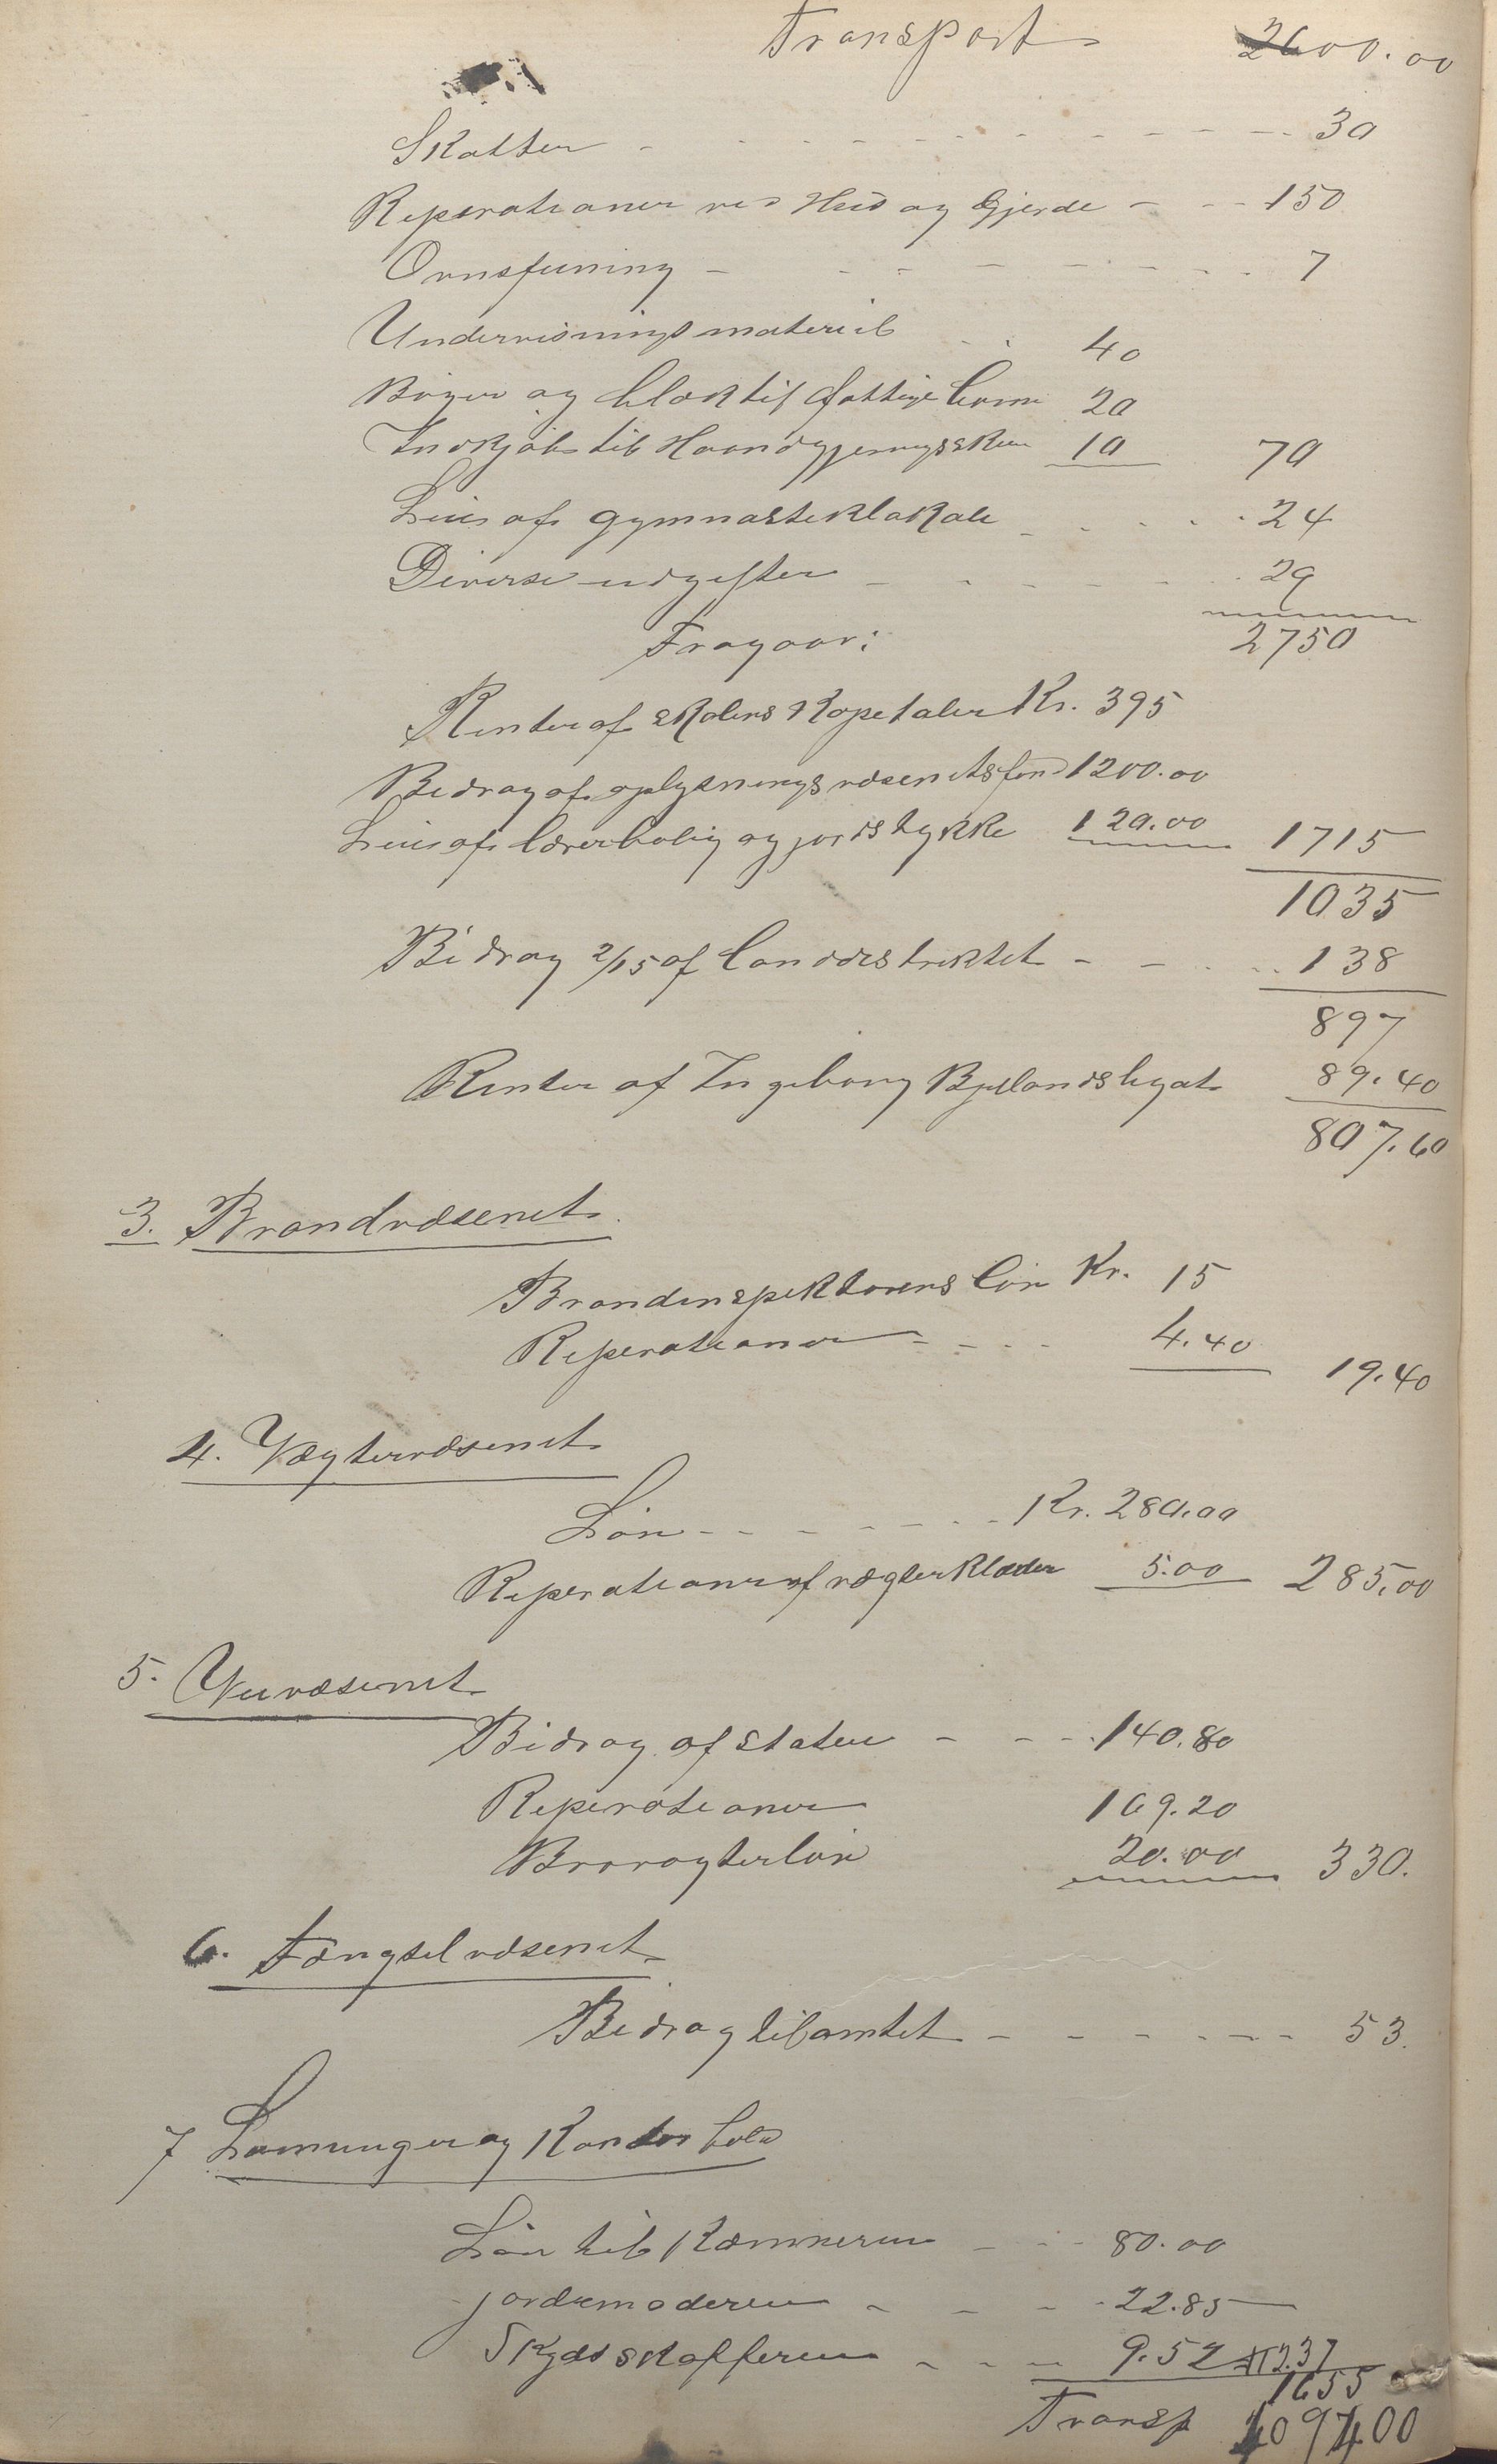 Transport 2600.00
Skatter - - - - - - - - - 30
Reperationer ved Hus og Gjerde - - - 150
Ovnsfeining - - - - - - - 7
Undervisningsmateriel - - 40
Bøger og blæk til fattige børn 20
Indkjøb til Haandgjerningsskn 10 70
Leie af gymnastiklokale - - - - 24
Diverse udgifter - - - - - - 29
Fragaar: 2750
Renter af skolens Kapetaler Kr. 395
Bidrag af oplysningsvæsenets fond 1200.00
Leie af lærerbolig og jordstykke 120.00 1715
1035
Bidrag 2/15 af landdistriktet - - - - 138
897
Renter af Ingeborg Bjellands legat 89.40
807.60
3. Brandvæsenet.
Brandinspektorens løn Kr. 15
Reperationer - - - - 4.40 19.40
4. Vægtervæsenet
Løn - - - - - - - Kr. 280.00
Reperationer af vægterklæder 5.00 285.00
5. Veivæsenet
Bidrag af staten - - - 140.80
Reperationer 169.20
Brovagterløn 20.00 330.
6. Fængselvæsenet
Bidrag til amtet - - - - - - 53.
7 Lønninger og Kontorhold
Løn til Kæmneren - - - 80.00
jordemoderen - - - - 22.85
Skydsskafferen - - - 9.52 112.37
1655
Transp 1097400